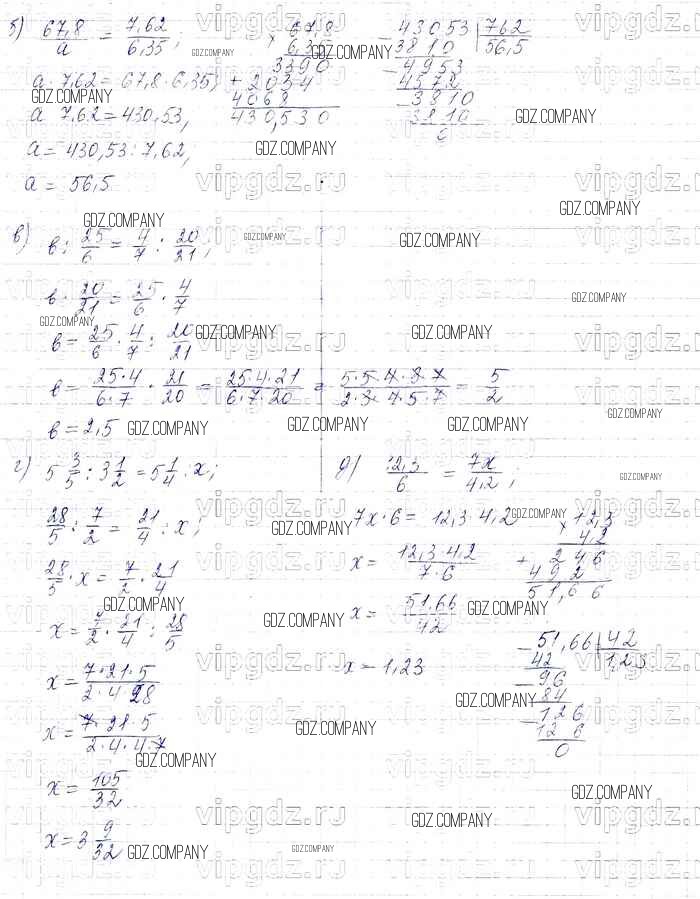 б) 67,8/a = 7,62/6,35;
a · 7,62 = 67,8 · 6,35;
a 7,62 = 430,53,
a = 430,53 : 7,62,
a = 56,5
× 67,8
6,35
3390
+ 2034
4068
430,530
- 43053 | 762
3810 | 56,5
- 4953
4572
- 3810
3810
0
в) в : 25/6 = 4/7 : 20/21;
в · 20/21 = 25/6 · 4/7
в = 25/6 · 4/7 : 20/21
в = 25·4/6·7 · 21/20 = 25·4·21/6·7·20 = 5·5·4·3·7/2·3·7·4·5 = 5/2
в = 2,5
г) 5 3/5 : 3 1/2 = 5 1/4 · x;
28/5 : 7/2 = 21/4 : x;
28/5 · x = 7/2 · 21/4
x = 7/2 · 21/4 : 28/5
x = 7·21·5/2·4·28
x = 7·21·5/2·4·4·7
x = 105/32
x = 3 9/32
д) 12,3/6 = 7x/4,2;
7x · 6 = 12,3 · 4,2
x = 12,3·4,2/7·6
x = 51,66/42
x = 1,23
× 12,3
4,2
+ 246
492
51,66
- 51,66 | 42
42 | 1,23
- 96
84
- 126
126
0
GDZ.COMPANY
vipgdz.ru